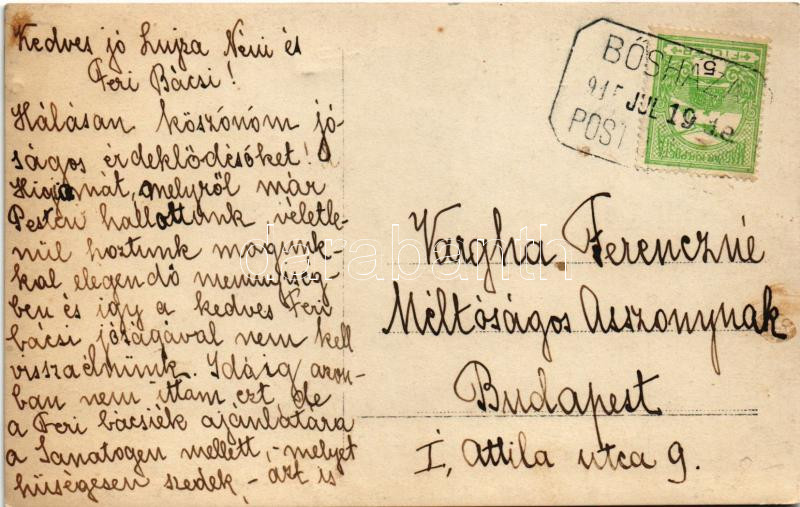 Kedves jó Lujza Néni és
Feri Bácsi!
Hálásan köszönöm jó-
ságos érdeklődésőket!
melyről már
Pesten hallottunk véletle-
nül hoztunk magunk-
kal elegendő mennyiség-
ben és igy a kedves Feri
bácsi jóságával nem kell
visszaélnünk. Idáig azon-
ban nem ittam ezt, de
a Feri bácsiék ajánlatára
a Sanatogen mellett, - melyet
hűségesen szedek, - azt is
BŐSHÁZA
915 JUL 19
POST
5
FILLÉR
MAGYAR KIR. POSTA
Vargha Ferenczné
Méltóságos Asszonynak
Budapest
I, Attila utca 9.
darabanth